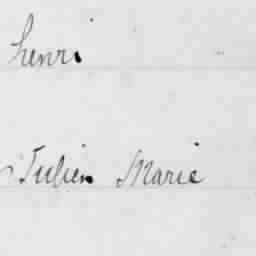 henri
Julien Marie